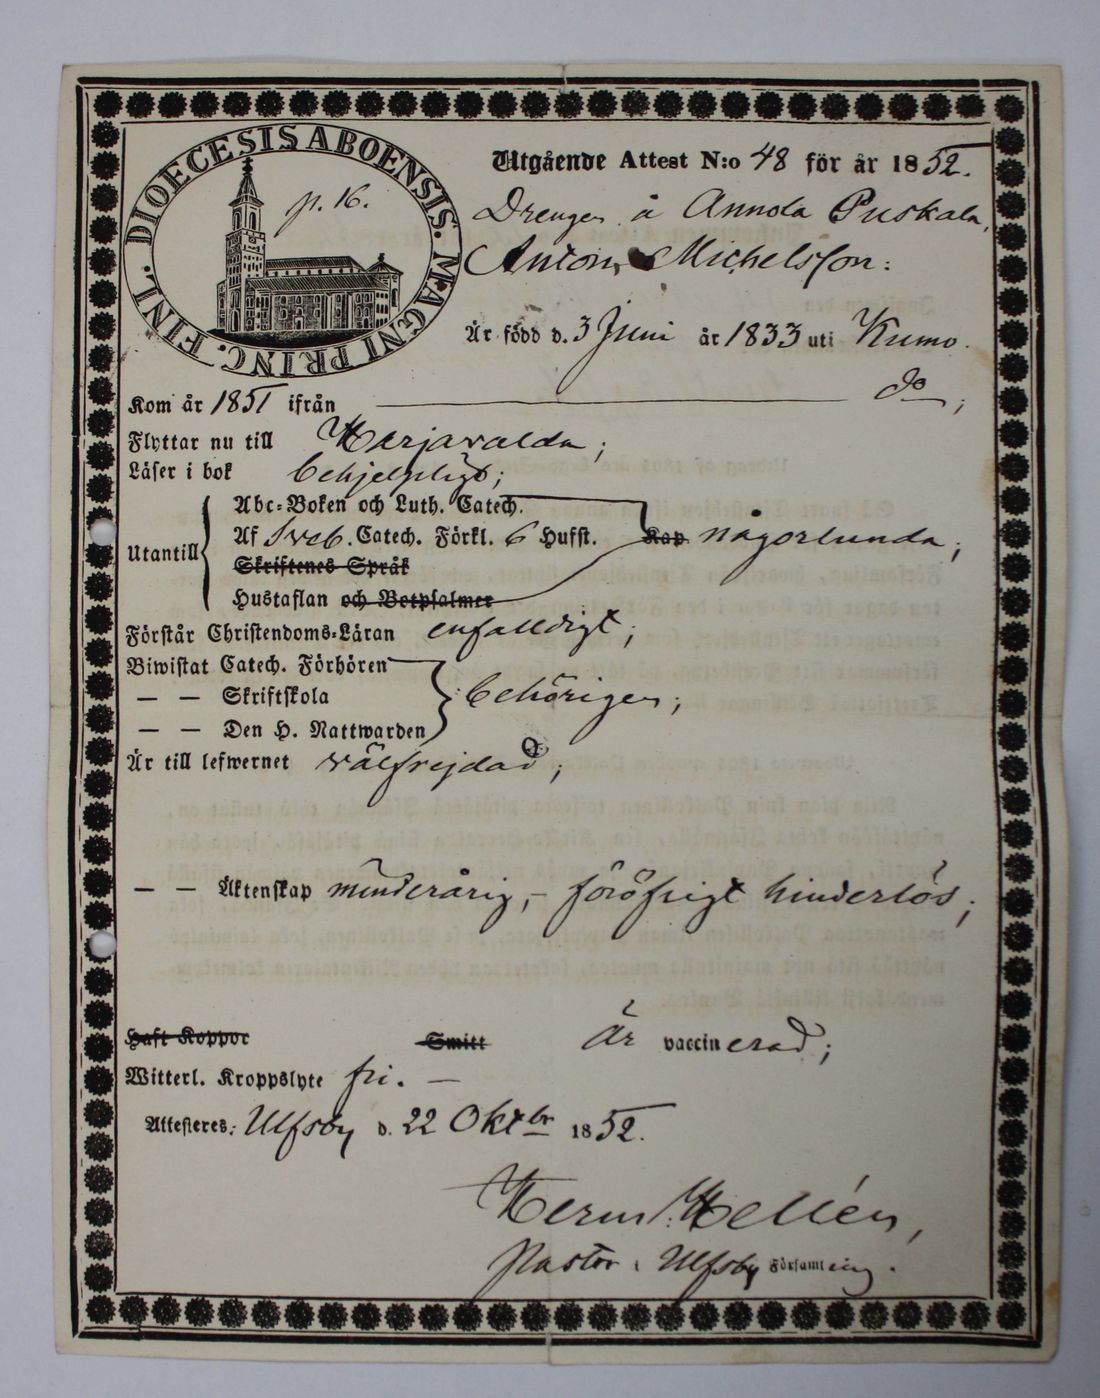 DIOECESIS ABOENSIS. MAGNI PRINC. FINL.
p. 16.
Utgående Attest N:o 48 för år 1852.
Drengen å Annola Puskala,
Anton Michelsson:
Är född d. 3 Juni år 1833 uti Kumo.
Kom år 1851 ifrån do;
Flyttar nu till Harjavalda;
Läser i bok behjelpligt;
Utantill
Abc-Boken och Luth. Catech.
Af Sveb. Catech. Förkl. 6 Hufst. Kap någorlunda;
Skriftenes Språk
Hustaflan och Botpsalmer
Förstår Christendoms-Läran enfalldigt;
Biwistat Catech. Förhören
— — Skriftskola behörigen;
— — Den H. Nattwarden
Är till lefwernet välfrejdad;
— — Äktenskap minderårig, – föröfrigt hinderlös;
Haft Koppor Smitt är vaccinerad;
Witterl. Kroppslyte fri. —
Attesteres: Ulfsby d. 22 Oktbr 1852.
Herm: Hellén,
Pastor i Ulfsby Församling.